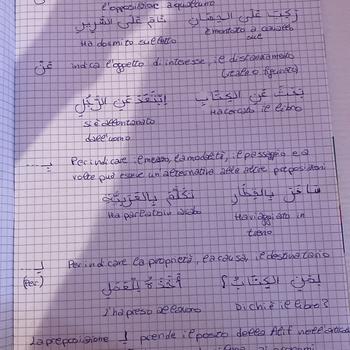 l'opposizione a qualcuno
رَكِبَ عَلَى الحِصَانِ نَامَ عَلَى السَّرِيرِ
Ha dormito sul letto È montato a cavallo
sul
عَنْ indica l'oggetto di interesse, il distanziamento
(reale o figurato)
بَحَثَ عَنِ الكِتَابِ اِبْتَعَدَ عَنِ الرَّجُلِ
Si è allontanato Ha cercato il libro
dall'uomo
بِـ Per indicare il mezzo, la modalità, il passaggio e a
volte può essere un'alternativa alle altre preposizioni
سَافَرَ بِالقِطَارِ تَكَلَّمَ بِالعَرَبِيَّةِ
Ha parlato in arabo Ha viaggiato in
treno
لِـ Per indicare la proprietà, la causa, il destinatario
(Per)
لِمَنِ الكِتَابُ؟ أَخَذَهُ لِلْعَمَلِ
L'ha preso al lavoro Di chi è il libro?
La preposizione لِ prende il posto della Alif nell'